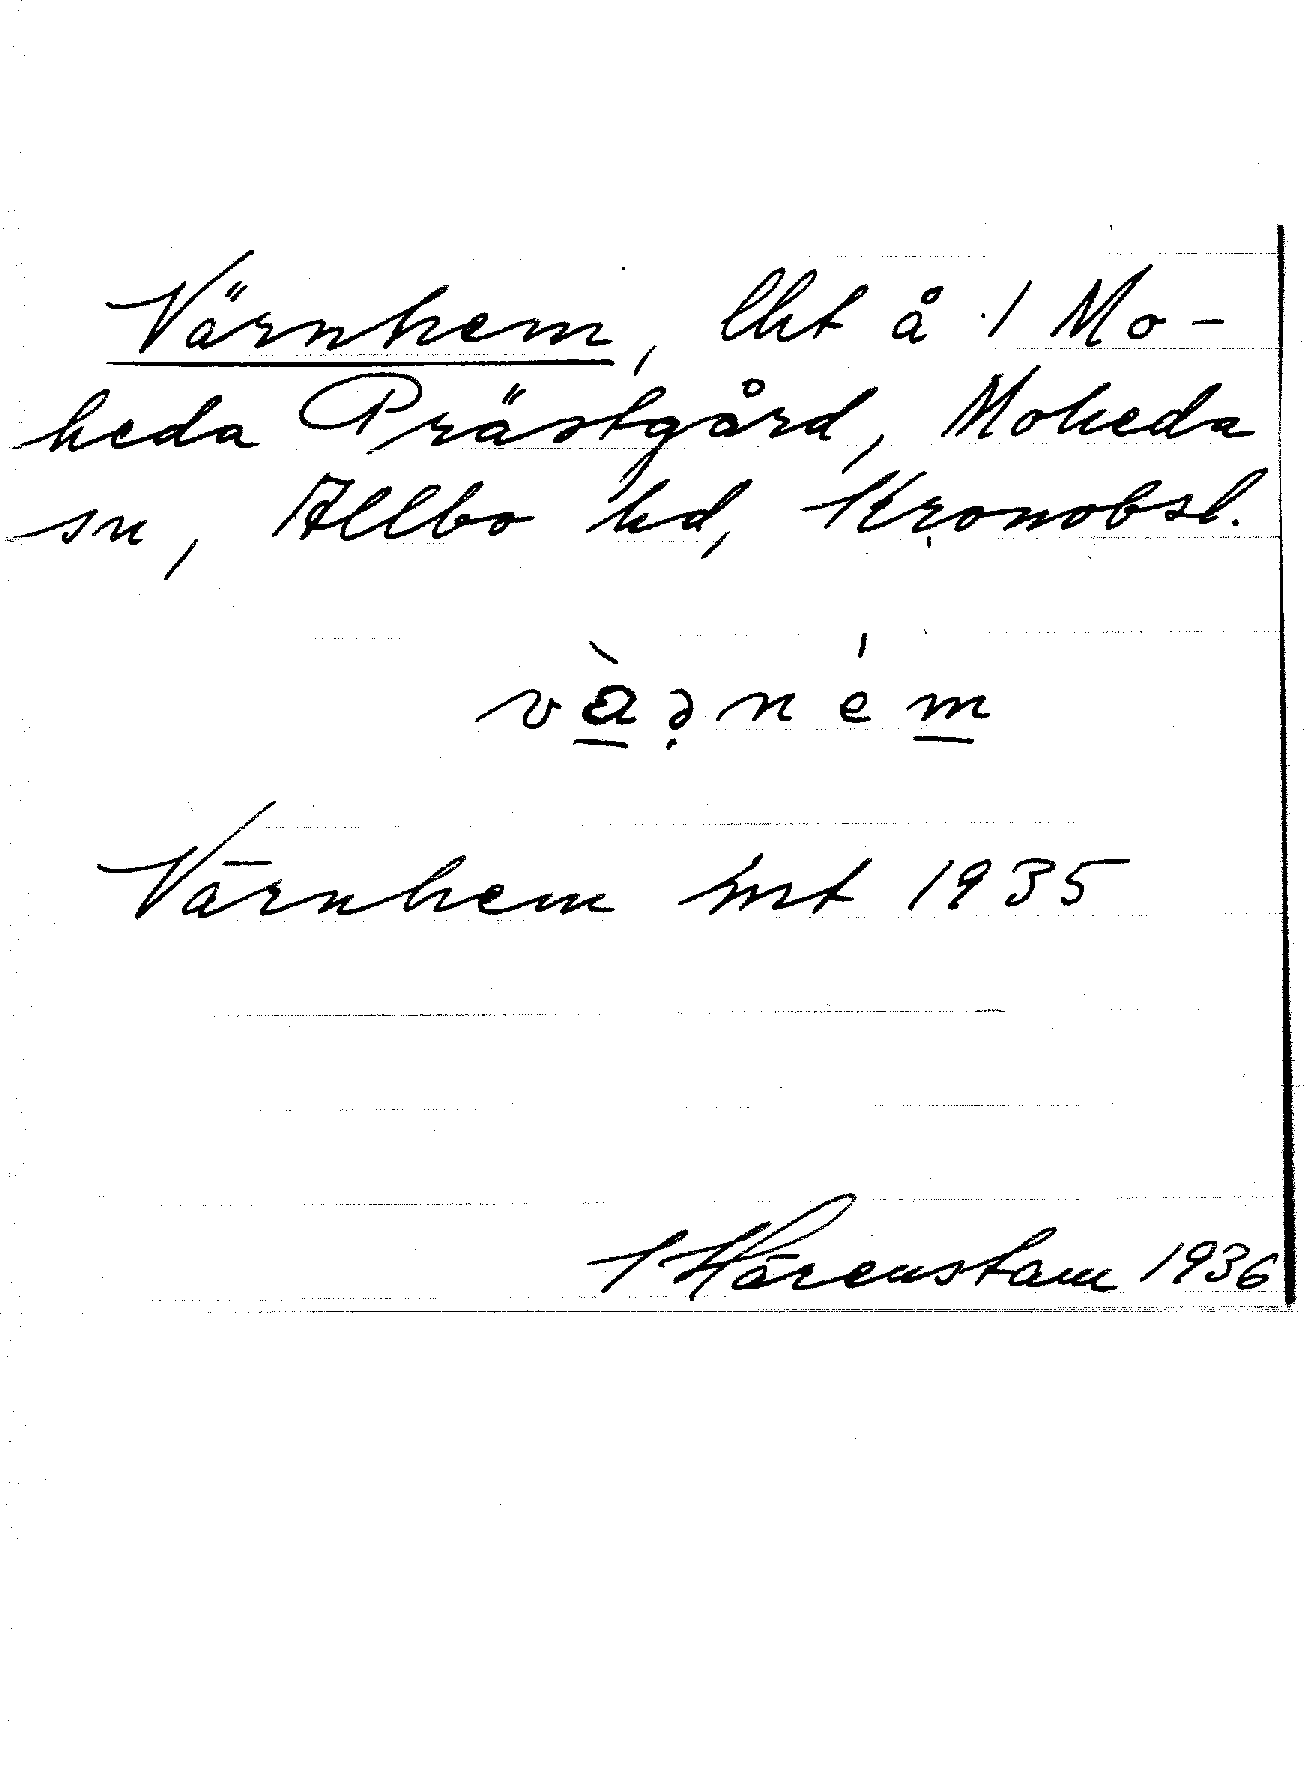 Värnhem, lht å 1 Mo-
heda Prästgård, Moheda
sn, Allbo hd, Kronobsl.
Värnhem mt 1935
Härenstam 1936